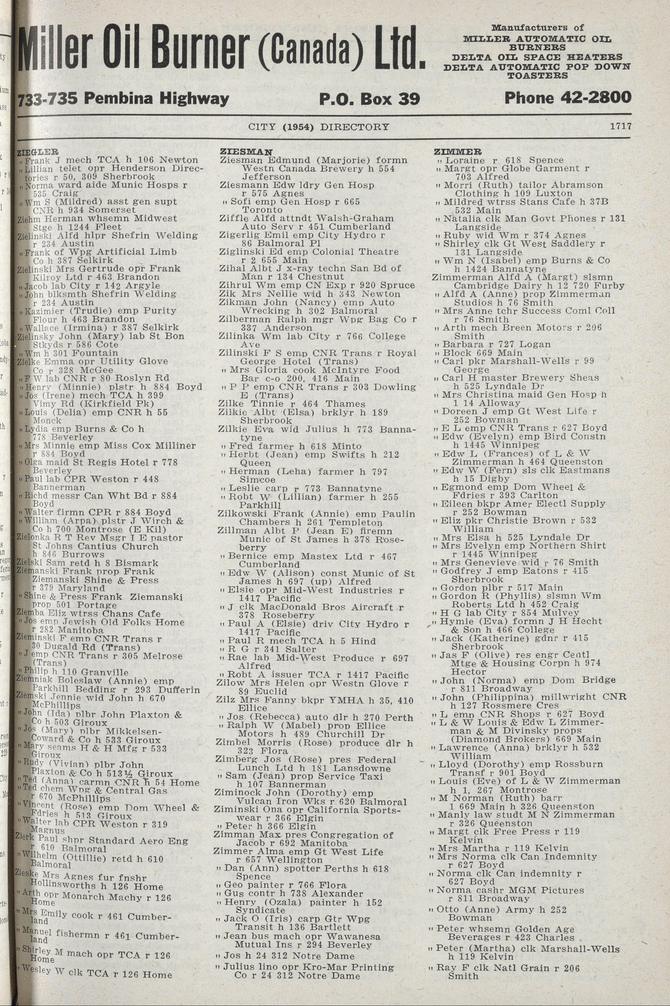 Miller Oil Burner (Canada) Ltd.
Manufacturers of
MILLER AUTOMATIC OIL
BURNERS
DELTA OIL SPACE HEATERS
DELTA AUTOMATIC POP DOWN
TOASTERS
733-735 Pembina Highway P.O. Box 39 Phone 42-2800
CITY (1954) DIRECTORY 1717
ZIEGLER
" Frank J mech TCA h 106 Newton
" Lillian telet opr Henderson Direc-
tories r 50, 309 Sherbrook
" Norma ward aide Munic Hosps r
535 Craig
" Wm S (Mildred) asst gen supt
CNR h 934 Somerset
Ziehm Herman whsemn Midwest
Stge h 1244 Fleet
Zielinski Alfd hlpr Shefrin Welding
r 234 Austin
" Frank of Wpg Artificial Limb
Co h 387 Selkirk
Zielinski Mrs Gertrude opr Frank
Kilroy Ltd r 463 Brandon
" Jacob lab City r 142 Argyle
" John blksmth Shefrin Welding
r 234 Austin
" Kazimier (Trudie) emp Purity
Flour h 463 Brandon
" Wallace (Irmina) r 387 Selkirk
Zielinsky John (Mary) lab St Bon
Stkyds r 586 Cote
" Wm h 301 Fountain
Zielke Emma opr Utility Glove
Co r 328 McGee
" F W lab CNR r 80 Roslyn Rd
" Henry (Minnie) plstr h 884 Boyd
" Jos (Irene) mech TCA h 399
Vimy Rd (Kirkfield Pk)
" Louis (Delia) emp CNR h 55
Monck
" Lydia emp Burns & Co h
778 Beverley
" Mrs Minnie emp Miss Cox Milliner
r 884 Boyd
" Olka maid St Regis Hotel r 778
Beverley
" Paul lab CPR Weston r 448
Bannerman
" Richd messr Can Wht Bd r 884
Boyd
" Walter firmn CPR r 884 Boyd
" William (Arpa) plstr J Wirch &
Co h 700 Montrose (E Kil)
Zielonka R T Rev Msgr I E pastor
St Johns Cantius Church
h 846 Burrows
Zielski Sam retd h 8 Bismark
Ziemanski Frank prop Frank
Ziemanski Shine & Press
r 379 Maryland
" Shine & Press Frank Ziemanski
prop 501 Portage
Ziemba Eliz wtrss Chans Cafe
" Jos emp Jewish Old Folks Home
r 282 Manitoba
Zieminski F emp CNR Trans r
30 Dugald Rd (Trans)
" J emp CNR Trans r 305 Melrose
(Trans)
" Philip h 110 Granville
Ziemniak Boleslaw (Annie) emp
Parkhill Bedding r 293 Dufferin
Ziemski Jennie wid John h 670
McPhillips
" John (Ida) plbr John Plaxton &
Co h 503 Giroux
" Jos (Mary) plbr Milkkelsen-
Coward & Co h 533 Giroux
" Mary seams H & H Mfg r 533
Giroux
" Rudy (Vivian) plbr John
Plaxton & Co h 513½ Giroux
" Ted (Anna) carmn CNR h 54 Home
" Ted chem Wpg & Central Gas
r 670 McPhillips
" Vincent (Rose) emp Dom Wheel &
Fdries h 513 Giroux
" Walter lab CPR Weston r 319
Magnus
Karl shpr Standard Aero Eng
r 610 Balmoral
" Wilhelm (Ottillie) retd h 610
Balmoral
Zieske Mrs Agnes fur fnshr
Hollinsworths h 126 Home
" Arth opr Monarch Machy r 126
Home
" Mrs Emily cook r 461 Cumber-
land
" Manuel fishermn r 461 Cumber-
land
" Shirley M mach opr TCA r 126
Home
" Wesley W clk TCA r 126 Home
ZIESMAN
Ziesman Edmund (Marjorie) formn
Westn Canada Brewery h 554
Jefferson
Ziesmann Edw ldry Gen Hosp
r 575 Agnes
" Sofi emp Gen Hosp r 665
Toronto
Ziffle Alfd attndt Walsh-Graham
Auto Serv r 451 Cumberland
Zigerlig Emil emp City Hydro r
86 Balmoral Pl
Ziglinski Ed emp Colonial Theatre
r 2 655 Main
Zihal Albt J x-ray techn San Bd of
Man r 134 Chestnut
Zihrul Wm emp CN Exp r 920 Spruce
Zik Mrs Nellie wid h 343 Newton
Zikman John (Nancy) emp Auto
Wrecking h 302 Balmoral
Zilberman Ralph mgr Wpg Bag Co r
337 Anderson
Zilinka Wm lab City r 766 College
Ave
Zilinski F S emp CNR Trans r Royal
George Hotel (Trans)
" Mrs Gloria cook McIntyre Food
Bar c-o 200, 416 Main
" P P emp CNR Trans r 203 Dowling
E (Trans)
Zilke Tinnie r 464 Thames
Zilkie Albt (Elsa) brklyr h 189
Sherbrook
Zilkie Eva wid Julius h 773 Banna-
tyne
" Fred farmer h 618 Minto
" Herbt (Jean) emp Swifts h 212
Queen
" Herman (Leha) farmer h 797
Simcoe
" Leslie carp r 773 Bannatyne
" Robt W (Lillian) farmer h 255
Parkhill
Zilkowski Frank (Annie) emp Paulin
Chambers h 261 Templeton
Zillman Albt P (Jean E) firemn
Munic of St James h 378 Rose-
berry
" Bernice emp Mastex Ltd r 467
Cumberland
" Edw W (Alison) const Munic of St
James h 697 (up) Alfred
" Elsie opr Mid-West Industries r
1417 Pacific
" J clk MacDonald Bros Aircraft r
378 Roseberry
" Paul A (Elsie) driv City Hydro r
1417 Pacific
" Paul R mech TCA h 5 Hind
" R G r 341 Salter
" Rae lab Mid-West Produce r 697
Alfred
" Robt A issuer TCA r 1417 Pacific
Zillow Mrs Helen opr Westn Glove r
89 Euclid
Zilz Mrs Fanny bkpr YMHA h 35, 410
Ellice
" Jos (Rebecca) auto dlr h 270 Perth
" Ralph W (Mabel) prop Ellice
Motors h 489 Churchill Dr
Zimbel Morris (Rose) produce dlr h
323 Flora
Zimberg Jos (Rose) pres Federal
Lunch Ltd h 181 Lansdowne
" Sam (Jean) prop Service Taxi
h 107 Bannerman
Ziminock John (Dorothy) emp
Vulcan Iron Wks r 620 Balmoral
Ziminski Ona opr California Sports-
wear r 366 Elgin
" Peter h 366 Elgin
Zimman Max pres Congregation of
Jacob r 692 Manitoba
Zimmer Alma emp Gt West Life
r 657 Wellington
" Dan (Ann) spotter Perths h 618
Spence
" Geo painter r 766 Flora
" Gus contr h 738 Alexander
" Henry (Ozala) painter h 152
Syndicate
" Jack O (Iris) carp Gtr Wpg
Transit h 136 Bartlett
" Jean bus mach opr Wawanesa
Mutual Ins r 294 Beverley
" Jos h 24 312 Notre Dame
" Julius lino opr Kro-Mar Printing
Co r 24 312 Notre Dame
ZIMMER
" Loraine r 618 Spence
" Margt opr Globe Garment r
703 Alfred
" Morri (Ruth) tailor Abramson
Clothing h 109 Luxton
" Mildred wtrss Stans Cafe h 37B
532 Main
" Natalia clk Man Govt Phones r 131
Langside
" Ruby wid Wm r 374 Agnes
" Shirley clk Gt West Saddlery r
131 Langside
" Wm N (Isabel) emp Burns & Co
h 1424 Bannatyne
Zimmerman Alfd A (Margt) slsmn
Cambridge Dairy h 12 720 Furby
" Alfd A (Anne) prop Zimmerman
Studios h 76 Smith
" Mrs Anne tchr Success Coml Coll
r 76 Smith
" Arth mech Breen Motors r 206
Smith
" Barbara r 727 Logan
" Block 669 Main
" Carl pkr Marshall-Wells r 99
George
" Carl H master Brewery Sheas
h 525 Lyndale Dr
" Mrs Christina maid Gen Hosp h
1 14 Alloway
" Doreen J emp Gt West Life r
252 Bowman
" E L emp CNR Trans r 627 Boyd
" Edw (Evelyn) emp Bird Constn
h 1445 Winnipeg
" Edw L (Frances) of L & W
Zimmerman h 464 Queenston
" Edw W (Fern) sls clk Eastmans
h 15 Digby
" Egmond emp Dom Wheel &
Fdries r 393 Carlton
" Eileen bkpr Amer Electl Supply
r 252 Bowman
" Eliz pkr Christie Brown r 532
William
" Mrs Elsa h 525 Lyndale Dr
" Mrs Evelyn emp Northern Shirt
r 1445 Winnipeg
" Mrs Genevieve wid r 76 Smith
" Godfrey J emp Eatons r 415
Sherbrook
" Gordon plbr r 517 Main
" Gordon R (Phyllis) slsmn Wm
Roberts Ltd h 452 Craig
" H G lab City r 854 Mulvey
" Hymie (Eva) formn J H Hecht
& Son h 466 College
" Jack (Katherine) gdnr r 415
Sherbrook
" Jas F (Olive) res engr Centl
Mtge & Housing Corpn h 974
Hector
" John (Norma) emp Dom Bridge
r 811 Broadway
" John (Philippina) millwright CNR
h 127 Rossmere Cres
" L emp CNR Shops r 627 Boyd
" L & W Louis & Edw L Zimmer-
man & M Divinsky props
(Diamond Brokers) 669 Main
" Lawrence (Anna) brklyr h 532
William
" Lloyd (Dorothy) emp Rossburn
Transf r 901 Boyd
" Louis (Eve) of L & W Zimmerman
h 1, 267 Montrose
" M Norman (Ruth) barr
1 669 Main h 326 Queenston
" Manly law studt M N Zimmerman
r 326 Queenston
" Margt clk Free Press r 119
Kelvin
" Mrs Martha r 119 Kelvin
" Mrs Norma clk Can Indemnity
r 627 Boyd
" Norma clk Can indemnity r
627 Boyd
" Norma cashr MGM Pictures
r 811 Broadway
" Otto (Anne) Army h 252
Bowman
" Peter whsemn Golden Age
Beverages r 423 Charles
" Peter (Martha) clk Marshall-Wells
h 119 Kelvin
" Ray F clk Natl Grain r 206
Smith